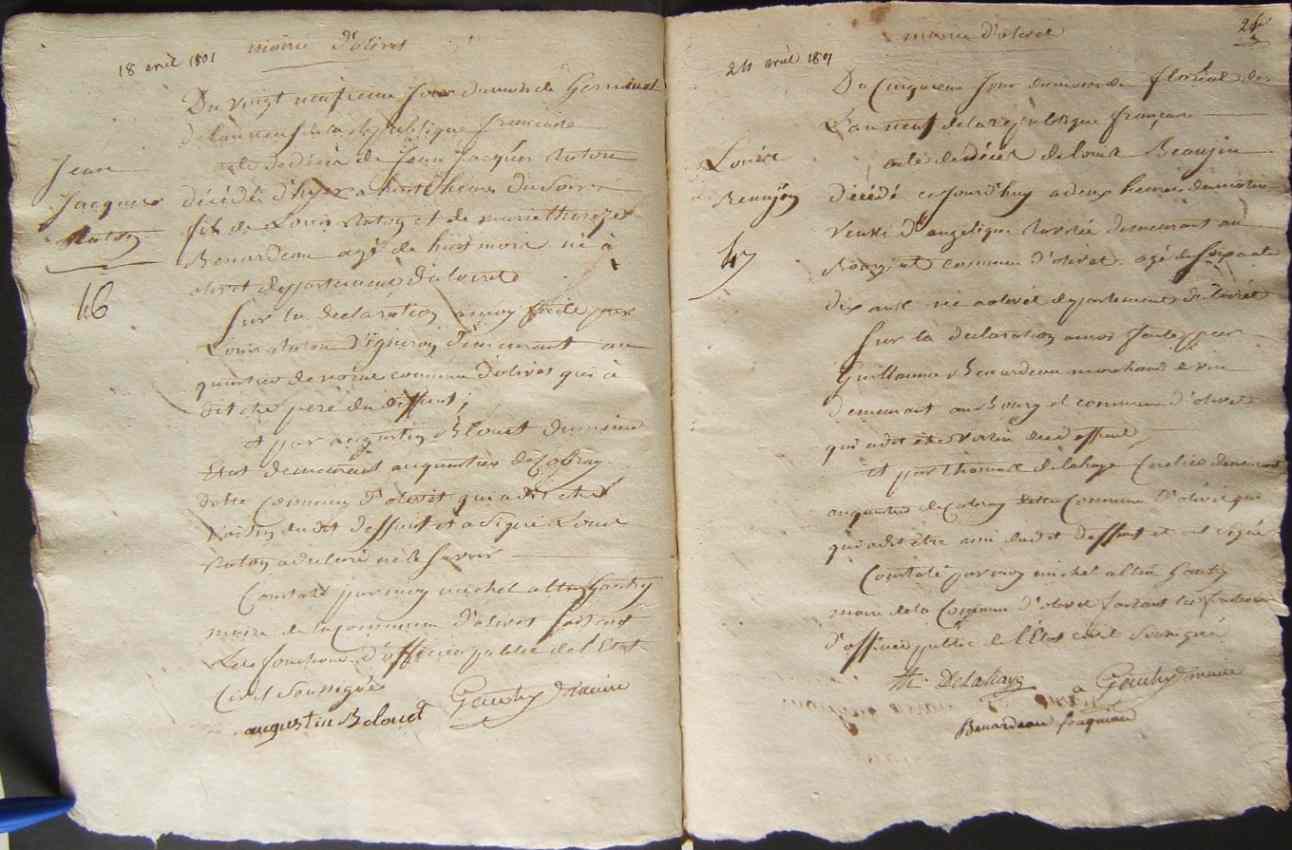 18 avril 1801
mairie d'olivet
Du vingt neufieme jour du mois de Germinal
de l'an neuf de la republique francaise
acte de décès de Jean Jacques
décédé d'hyer a huit heures du Soir
fils de Louis et de marie therese
Benardeau agé de huit mois né à
olivet departement du loiret
Jean
Jacques
46
Sur la declaration a moy faite par
Louis vigneron demeurant au
quartier de commune d'olivet qui a
dit etre pere du deffunt,
et par augustin Blouet du meme
etat demeurant au quartier de
dette Commune d'olivet qui a dit etre
voisin dudit deffunt et a signé Louis
a declaré ne le savoir
Constaté par moy michel Gauthy
maire de la commune d'olivet faisant
Les fonctions d'officier public de l'Etat
Civil Soussigné
augustin Belouet Gauthy maire
24 avril 1801
mairie d'olivet
Du Cinquieme jour du mois de floréal de
L'an neuf de la republique française
acte de décès de louis Beaujeu
décédé cejourd'huy a deux heures du matin
veuf d'angelique demeurant au
Bourg et commune d'olivet agé de soixante
dix ans né a olivet departement du loiret
47
Sur la declaration a moi faite par
Guillaume Benardeau marchand de vin
demeurant au Bourg et commune d'olivet
qui a dit etre voisin dudit deffunt
et par thomas delahaye demeurant
au quartier de dette Commune d'olivet qui
qui a dit être ami dudit deffunt et ont signé
Constaté par moy michel Gauthy
maire de la Commune d'olivet faisant les fonctions
d'officier public de l'Etat civil Soussigné
th. DeLahaye Gauthy maire
Benardeau